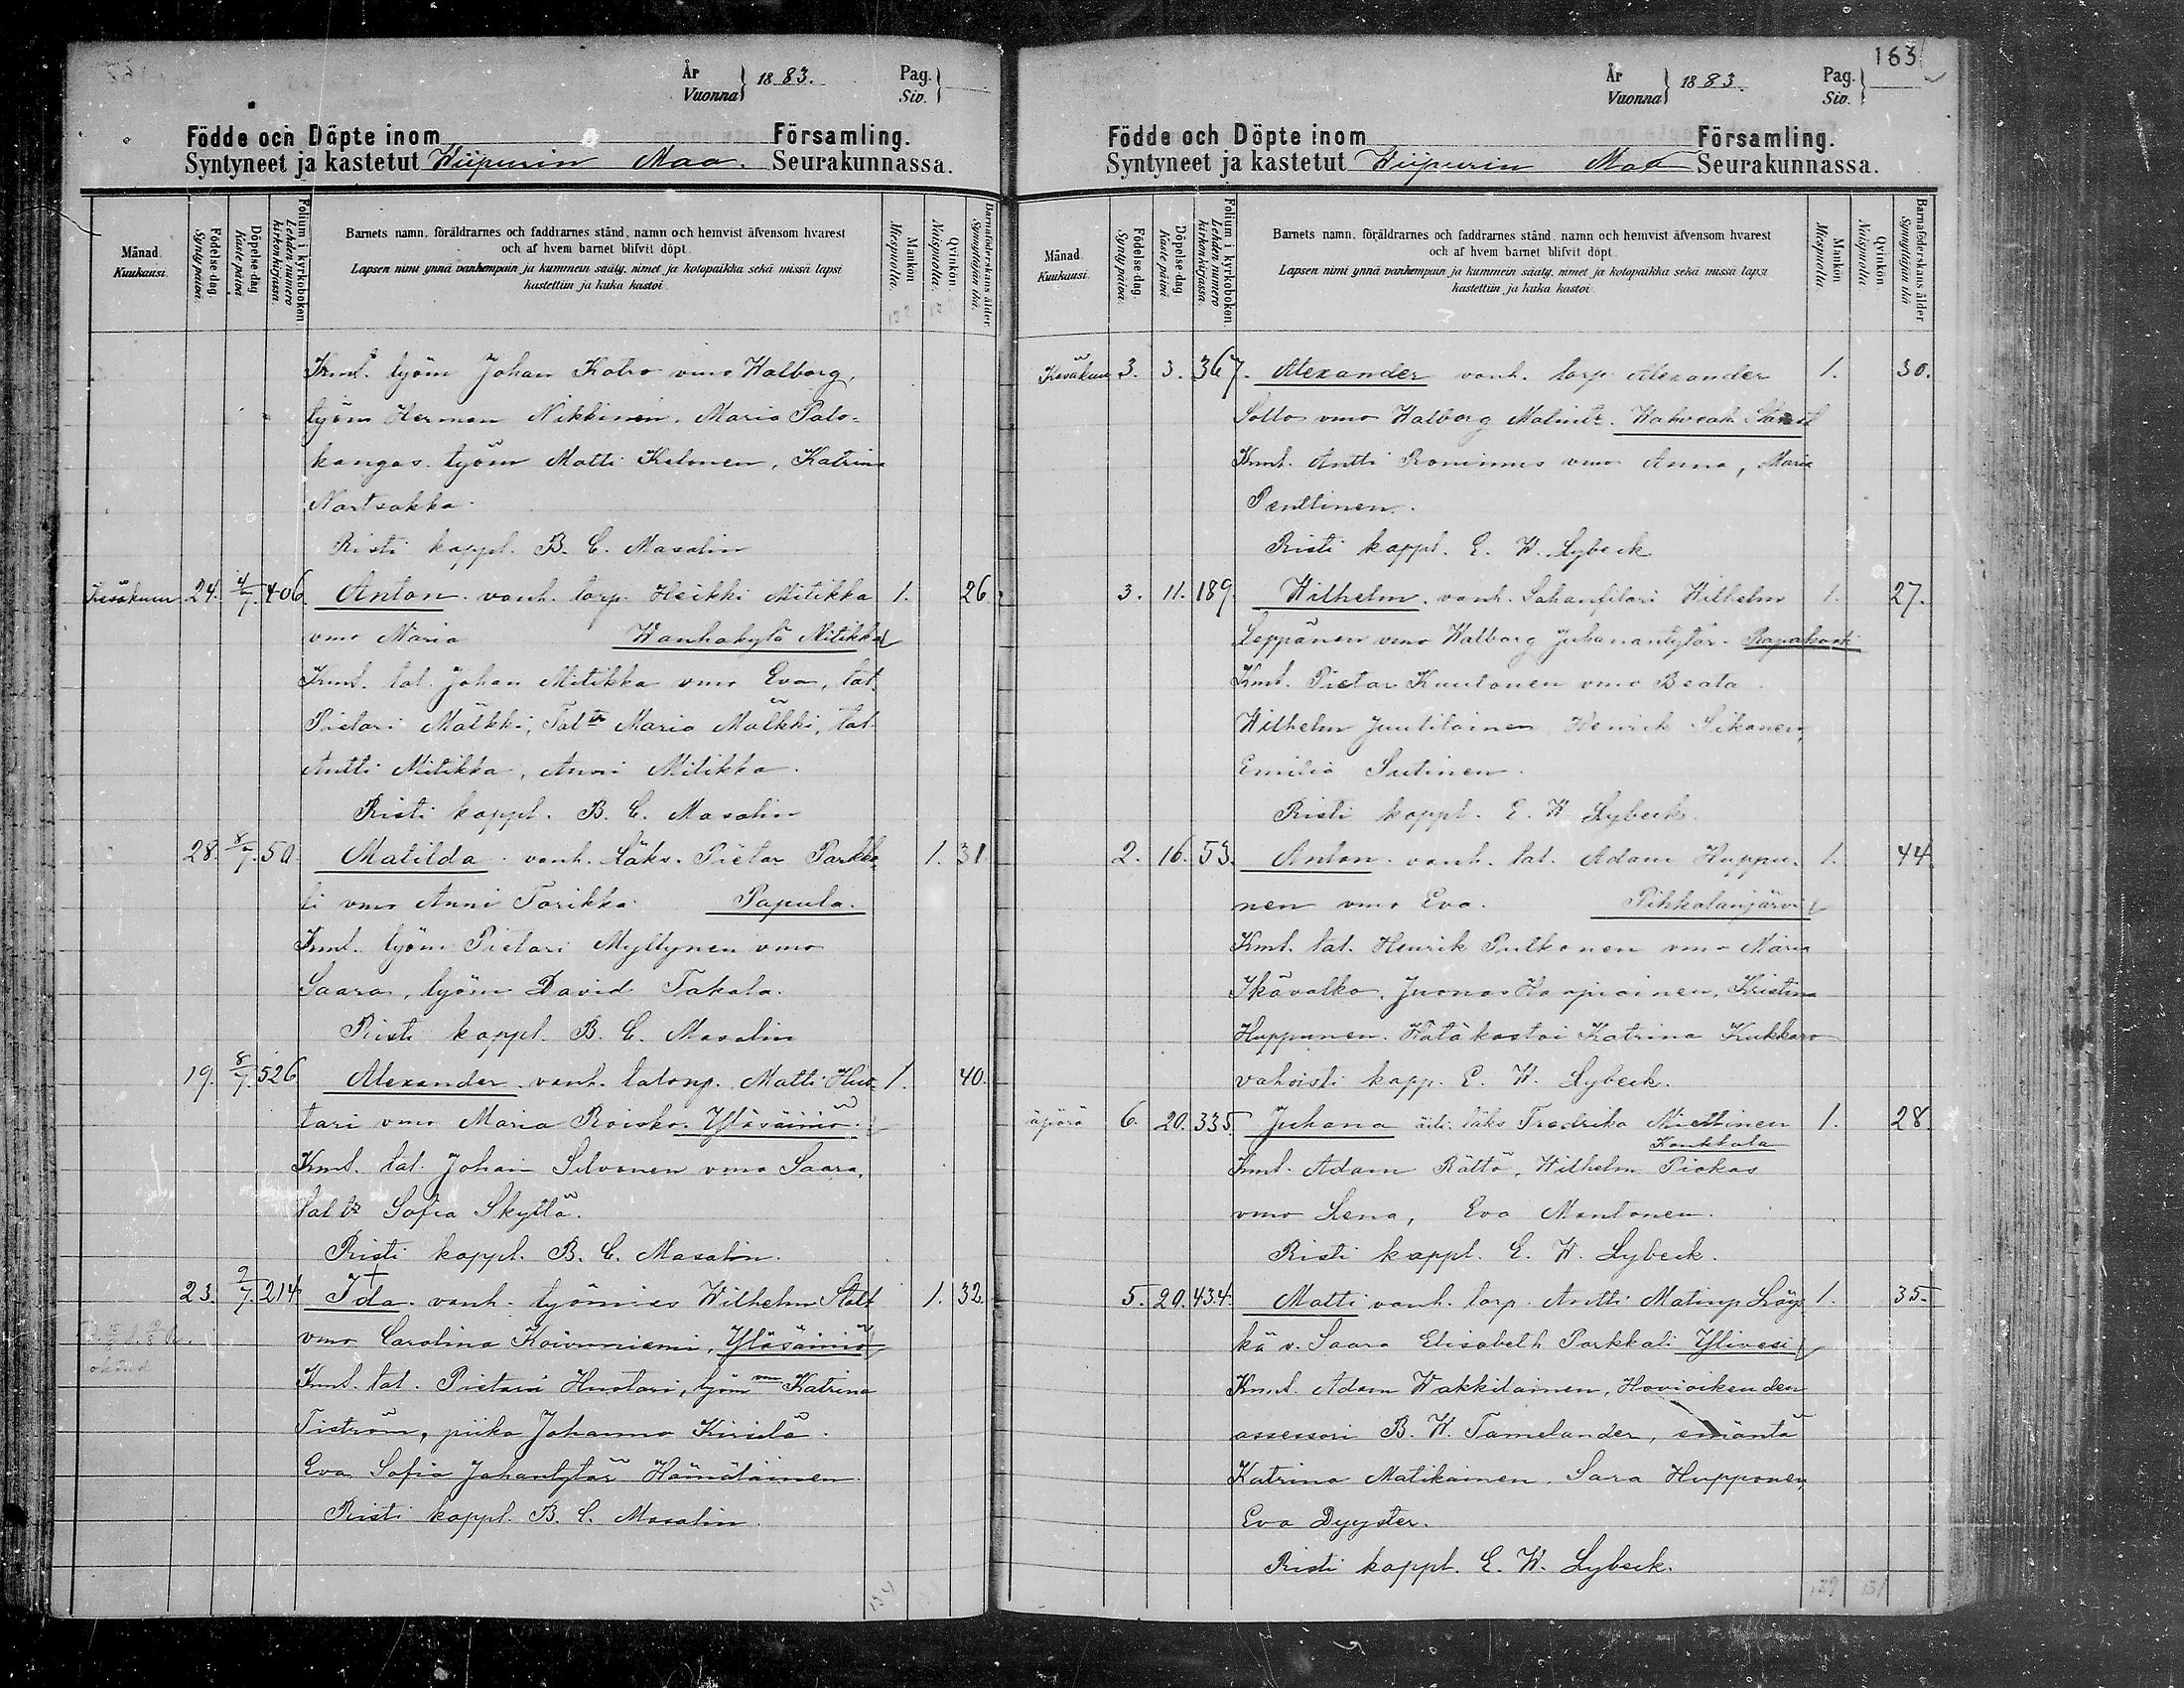 År Vuonna } 1883. Pag. Siv. }
Födde och Döpte inom Församling.
Syntyneet ja kastetut Wiipurin Maa. Seurakunnassa.
Månad. Kuukausi.
Födelse dag Synty päivä.
Döpelse dag Kaste päivä
Folium i kyrkoboken Lehden numero kirkonkirjassa.
Barnets namn, föräldrarnes och faddrarnes stånd, namn och hemvist äfvensom hvarest
och af hvem barnet blifvit döpt.
Lapsen nimi ynnä vanhempain ja kummein sääty, nimet ja kotopaikka sekä missä lapsi
kastettiin ja kuka kastoi.
Mankön Miespuolta.
Qvinkön Naispuolta.
Barnaföderskans ålder. Synnyttäjän ikä.
Kml. työm Johan Katro vmo Walborg,
työm Herman Nikkinen, Maria Palo-
kangas. työm Matti Ketonen, Katrina
Nartsakka
Risti kappl. B. C. Masalin
Kesäkuun 24. 4/7. 406. Anton. vanh. torp. Heikki Mitikka 1. 26.
vmo Maria Wanhakylä Mitikka
Kml. tal. Johan Mitikka vmo Eva, tal.
Pietari Mälkki, Tal tr Maria Mälkki, tal.
Antti Mitikka, Anni Mitikka.
Risti kappl. B. C. Masalin
28. 8/7. 50 Matilda. vanh. läks. Pietar Parkka- 1. 31.
li vmo Anni Torikka Papula.
Kml. työm Pietari Myllynen vmo
Saara, työm David Takala.
Risti kappl. B. C. Masalin
19. 8/7. 526 Alexander. vanh. talonp. Matti Huo- 1. 40.
tari vmo Maria Roisko. Yläsäiniö.
Kml. tal. Johan Silvonen vmo Saara,
tal tr Sofia Skyttä.
Risti kappl. B. C. Masalin.
23. 9/7. 214 Ida. vanh. työmies Wilhelm Stolt 1. 32.
vmo Carolina Koivuniemi, Yläsäiniö
Kml. tal. Pietari Huotari, työm vmo Katrina
Tiström, piika Johanna Kiriilä.
Eva Sofia Johantytär Hämäläinen
Risti kappl. B. C. Masalin.
134
163
År Vuonna } 1883. Pag. Siv. }
Födde och Döpte inom Församling.
Syntyneet ja kastetut Wiipurin Maa Seurakunnassa.
Månad. Kuukausi.
Födelse dag Synty päivä.
Döpelse dag Kaste päivä
Folium i kyrkoboken Lehden numero kirkonkirjassa.
Barnets namn, föräldrarnes och faddrarnes stånd, namn och hemvist äfvensom hvarest
och af hvem barnet blifvit döpt.
Lapsen nimi ynnä vanhempain ja kummein sääty, nimet ja kotopaikka sekä missä lapsi
kastettiin ja kuka kastoi.
Mankön Miespuolta.
Qvinkön Naispuolta
Barnaföderskans ålder Synnyttäjän ikä
Kesäkuu 3. 3. 367. Alexander vanh. torp Alexander 1. 30.
Sollo vmo Walborg
Kml. Antti vmo Anna, Maria
Penttinen.
Risti kappl. E. W. Lybeck
3. 11. 189. Wilhelm. vanh. Sahanfilari Wilhelm 1. 27.
Leppänen vmo Walborg Juhanantytär.
Kml. Pietar Kuulonen vmo Beata
Wilhelm Juutilainen Henrik Sikanen,
Emilia Sutinen.
Risti kappl. E. W. Lybeck.
2. 16. 53. Anton. vanh. tal. Adam Huppu- 1. 44.
nen vmo Eva. Pihkalanjärvi
Kml. tal. Henrik Pulkonen vmo Maria
Ikävalko, Juonas Haapiainen, Kristina
Huppunen. Hätäkastoi Katrina Kukkaro
vahvisti kapp. E. W. Lybeck.
äpärä 6. 20. 335. Juhana äiti. läks Fredrika Miettinen 1. 28.
Kankkala
Kml. Adam Rättö, Wilhelm Piokas
vmo Lena, Eva Mantonen.
Risti kappl. E. W. Lybeck.
5. 20. 434. Matti vanh. torp. Antti Matinp Löy- 1. 35.
kä v. Saara Elisabeth Parkkali Ylivesi
Kml. Adam Wakkilainen, Hovioikeuden
assessori B. W. Tamelander, emäntä
Katrina Matikainen, Sara Hupponen,
Eva Dyyster.
Risti kappl. E. W. Lybeck.
139 131